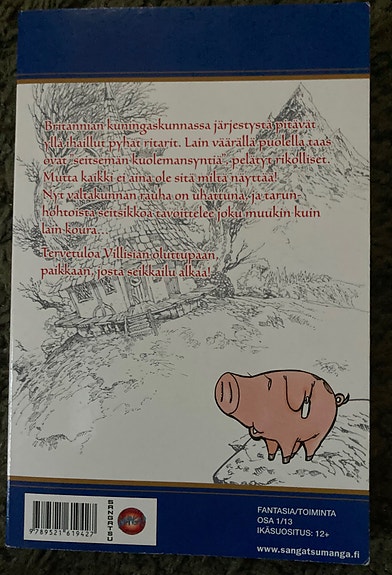 Britannian kuningaskunnassa järjestystä pitävät
ylvään ihaillut pyhät ritarit. Lain väärällä puolella taas
ovat "seitsemän kuolemansyntiä", pelätyt rikolliset.
Mutta kaikki ei aina ole sitä miltä näyttää!
Nyt valtakunnan rauha on uhattuna, ja tarun-
hohtoista seitsikkoa tavoittelee joku muukin kuin
lain koura...
Tervetuloa Villisian oluttupaan,
paikkaan, josta seikkailu alkaa!
9789521619427
SANGATSU
FANTASIA/TOIMINTA
OSA 1/13
IKÄSUOSITUS: 12+
www.sangatsumanga.fi